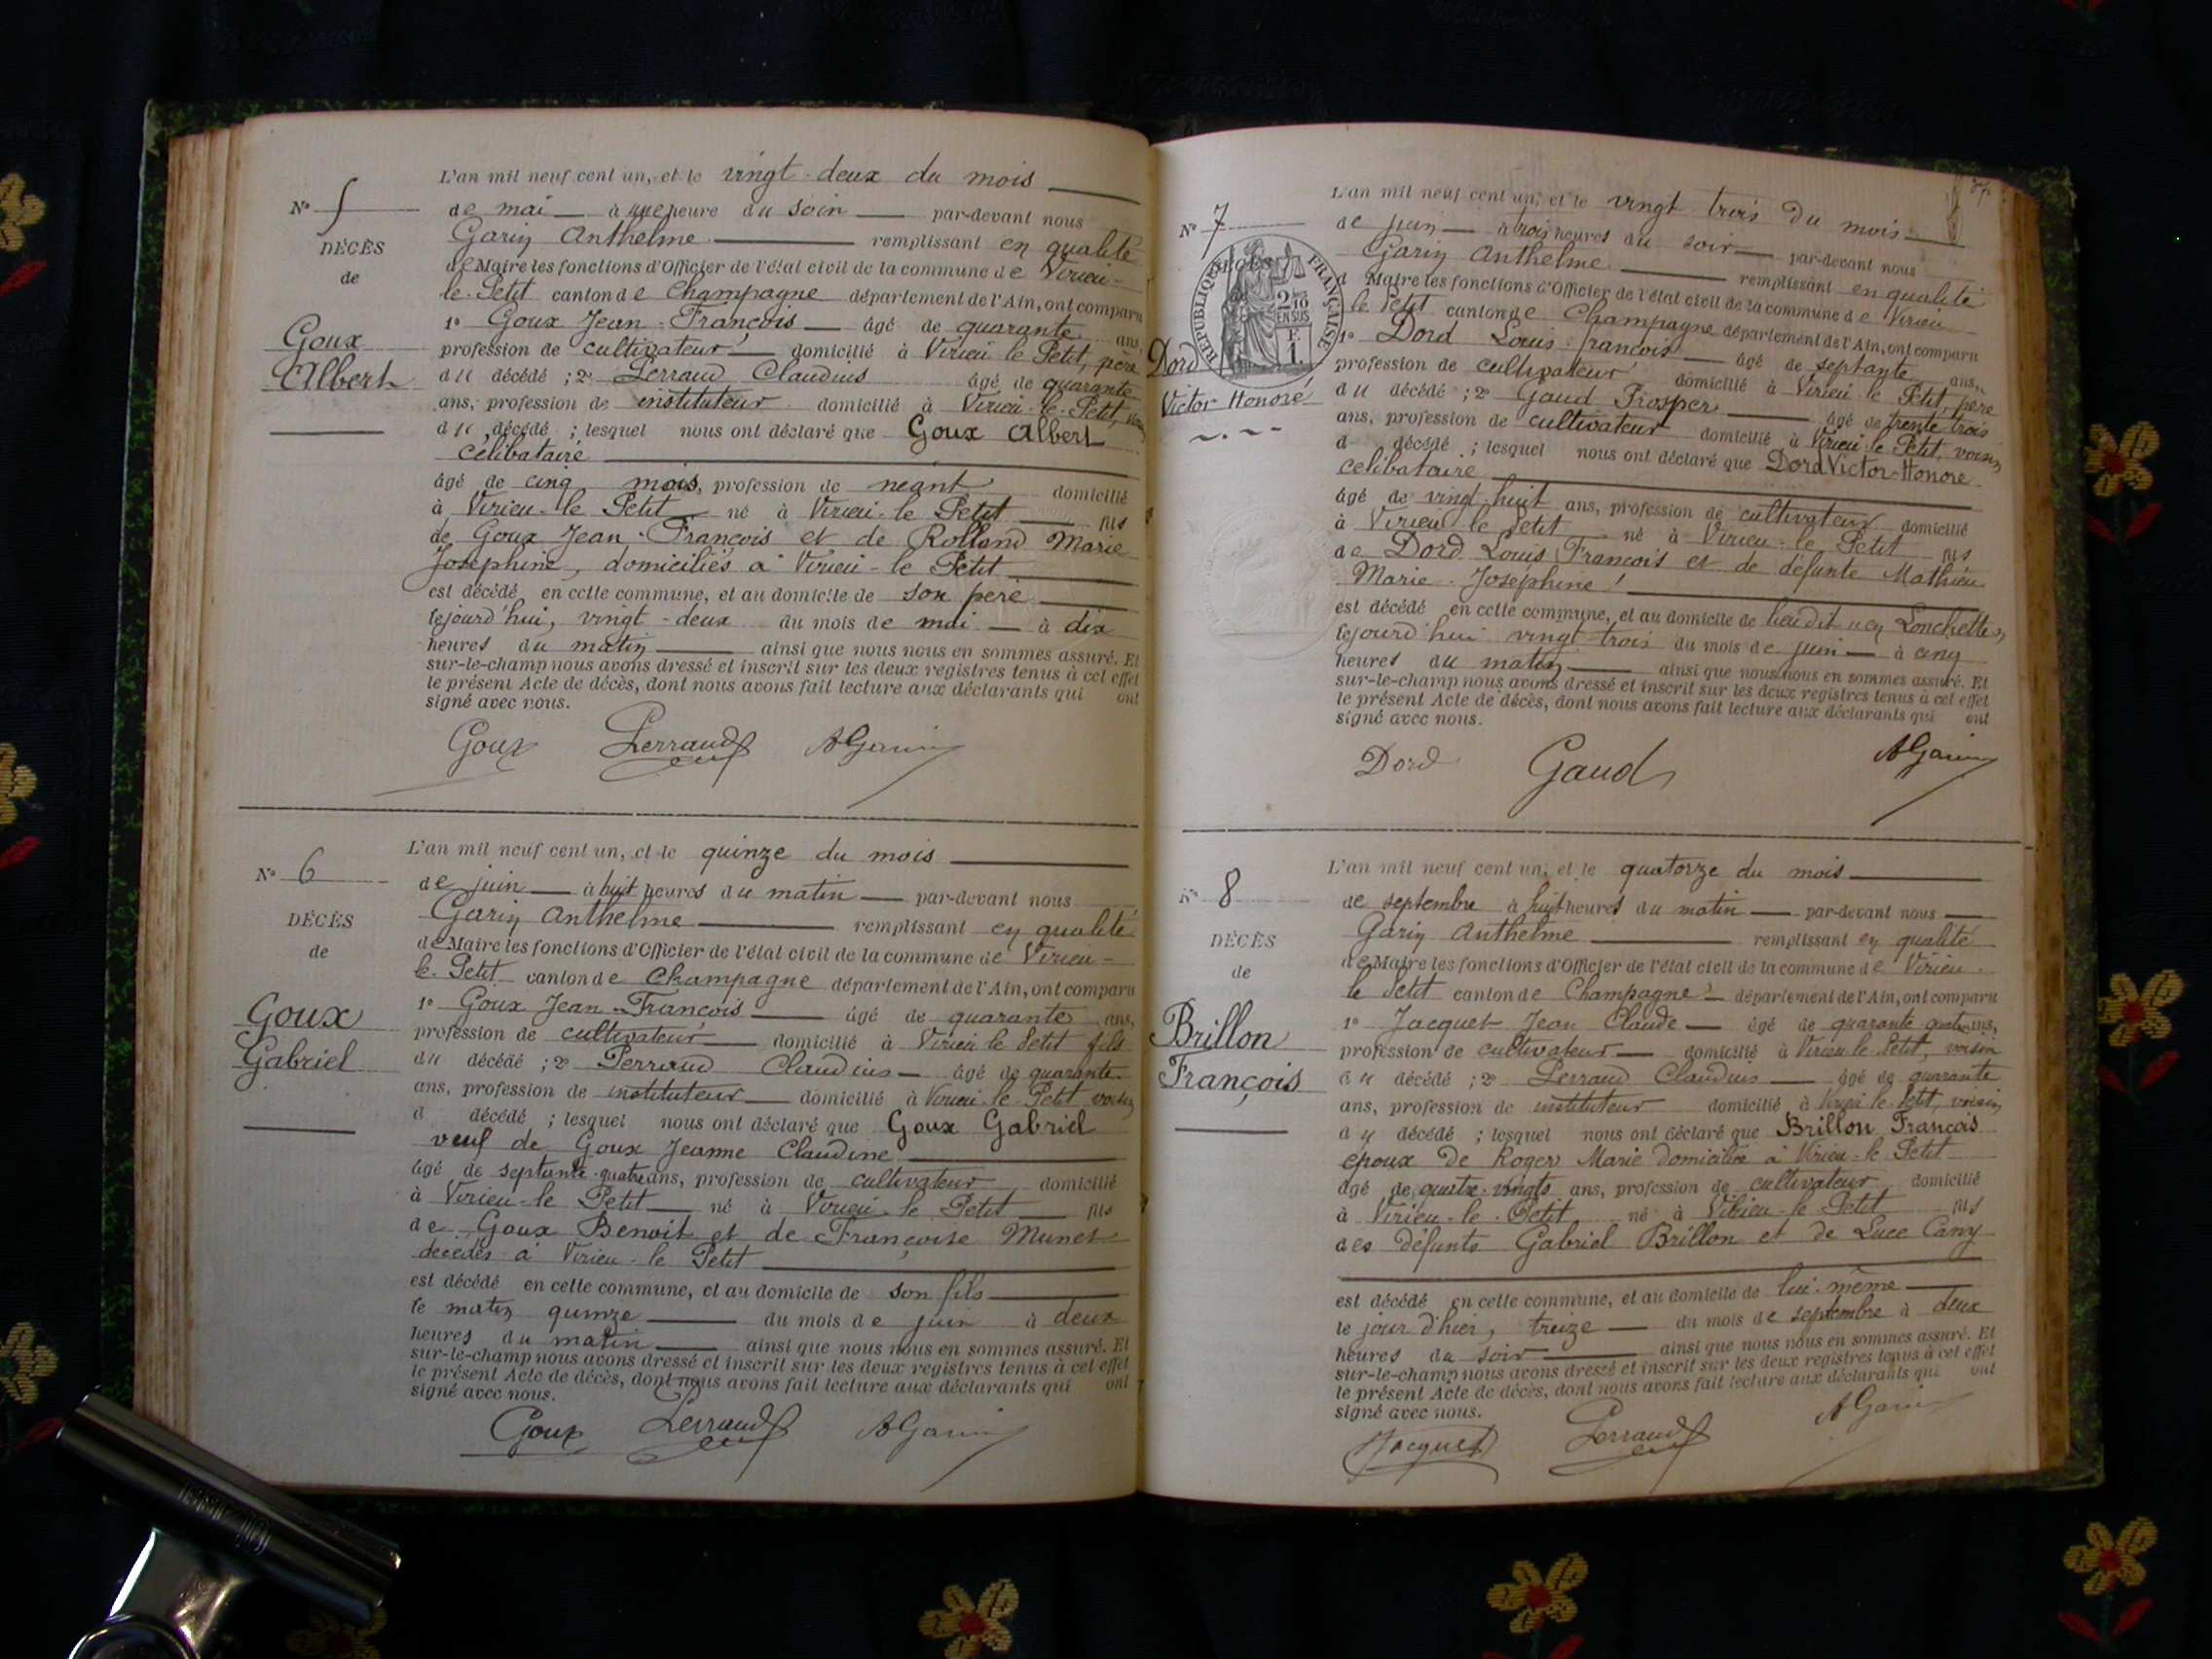 L'an mil neuf cent un, et le vingt-deux du mois
N° 5
de mai à une heure du soir par-devant nous
DÉCÈS
Garin Anthelme remplissant en qualité
de
de Maire les fonctions d'Officier de l'état civil de la commune de Virieu-
le-Petit canton de Champagne département de l'Ain, ont comparu
Goux
1° Goux Jean-François âgé de quarante ans,
profession de cultivateur domicilié à Virieu le Petit, père
Albert
du décédé ; 2° Perraud Claudius âgé de quarante
ans, profession de instituteur domicilié à Virieu-le-Petit,
du décédé ; lesquel nous ont déclaré que Goux Albert
célibataire
âgé de cinq mois, profession de néant domicilié
à Virieu-le Petit né à Virieu-le Petit fils
de Goux Jean-François et de Rolland Marie
Joséphine, domiciliés à Virieu-le Petit
est décédé en cette commune, et au domicile de son père
lejourd'hui, vingt-deux du mois de mai à dix
heures du matin ainsi que nous nous en sommes assuré. Et
sur-le-champ nous avons dressé et inscrit sur les deux registres tenus à cet effet
le présent Acte de décès, dont nous avons fait lecture aux déclarants qui ont
signé avec nous.
Goux Perraud AGarin
L'an mil neuf cent un, et le quinze du mois
N° 6
de juin à huit heures du matin par-devant nous
DÉCÈS
Garin Anthelme remplissant en qualité
de
de Maire les fonctions d'Officier de l'état civil de la commune de Virieu-
le-Petit canton de Champagne département de l'Ain, ont comparu
Goux
1° Goux Jean-François âgé de quarante ans,
profession de cultivateur domicilié à Virieu le Petit fils
Gabriel
du décédé ; 2° Perraud Claudius âgé de quarante
ans, profession de instituteur domicilié à Virieu-le-Petit voisin
d décédé ; lesquel nous ont déclaré que Goux Gabriel
veuf de Goux Jeanne Claudine
âgé de septante-quatre ans, profession de cultivateur domicilié
à Virieu-le Petit né à Virieu-le Petit fils
de Goux Benoit et de Françoise Munet
décédés à Virieu-le Petit
est décédé en cette commune, et au domicile de son fils
le matin quinze du mois de juin à deux
heures du matin ainsi que nous nous en sommes assuré. Et
sur-le-champ nous avons dressé et inscrit sur les deux registres tenus à cet effet
le présent Acte de décès, dont nous avons fait lecture aux déclarants qui ont
signé avec nous.
Goux Perraud AGarin
L'an mil neuf cent un, et le vingt trois du mois
N° 7
de juin à trois heures du soir par-devant nous
DÉCÈS
RÉPUBLIQUE FRANÇAISE
2/10 EN SUS
F. 1.
Garin Anthelme remplissant en qualité
d Maire les fonctions d'Officier de l'état civil de la commune de Virieu
le Petit canton de Champagne département de l'Ain, ont comparu
Dord
1° Dord Louis-françois âgé de septante ans,
profession de cultivateur domicilié à Virieu-le Petit, père
Victor-Honoré
du décédé ; 2° Gaud Prosper âgé de trente trois
ans, profession de cultivateur domicilié à Virieu-le-Petit, voisin
d décédé ; lesquel nous ont déclaré que Dord Victor-Honoré
célibataire
âgé de vingt-huit ans, profession de cultivateur domicilié
à Virieu le Petit né à Virieu-le Petit fils
de Dord Louis François et de défunte Mathieu
Marie-Joséphine
est décédé en cette commune, et au domicile de lieu dit
lejourd'hui vingt-trois du mois de juin à cinq
heures du matin ainsi que nous nous en sommes assuré. Et
sur-le-champ nous avons dressé et inscrit sur les deux registres tenus à cet effet
le présent Acte de décès, dont nous avons fait lecture aux déclarants qui ont
signé avec nous.
Dord Gaud AGarin
L'an mil neuf cent un, et le quatorze du mois
N° 8
de septembre à huit heures du matin par-devant nous
DÉCÈS
Garin Anthelme remplissant en qualité
de
de Maire les fonctions d'Officier de l'état civil de la commune de Virieu-
le Petit canton de Champagne département de l'Ain, ont comparu
Brillon
1° Jacquet Jean Claude âgé de quarante quatre ans,
profession de cultivateur domicilié à Virieu-le-Petit, voisin
François
du décédé ; 2° Perraud Claudius âgé de quarante
ans, profession de instituteur domicilié à Virieu le Petit, voisin
du décédé ; lesquel nous ont déclaré que Brillon François
époux de Roger Marie domiciliée à Virieu-le Petit
âgé de quatre-vingts ans, profession de cultivateur domicilié
à Virieu-le-Petit né à Virieu-le Petit fils
des défunts Gabriel Brillon et de Luce Camy
est décédé en cette commune, et au domicile de lui-même
le jour d'hier, treize du mois de septembre à deux
heures du soir ainsi que nous nous en sommes assuré. Et
sur-le-champ nous avons dressé et inscrit sur les deux registres tenus à cet effet
le présent Acte de décès, dont nous avons fait lecture aux déclarants qui ont
signé avec nous.
Jacquet Perraud AGarin